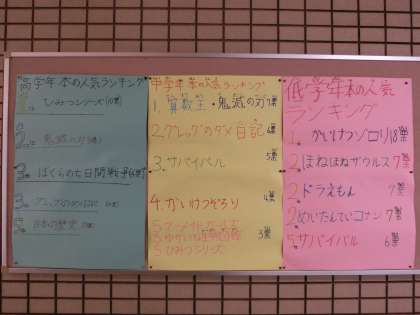 高学年本の人気ランキング
1位 ひみつシリーズ
2位 鬼滅の刃
3位 ぼくらの七日間戦争
3位
5位 日本の歴史
中学年本の人気ランキング
1. 算数王・鬼滅の刃 7票
2. グレッグのダメ日記 6票
3. サバイバル 5票
4. かいけつぞろり 4票
5. 3票
5.
5. ひみつシリーズ
低学年本の人気
ランキング
1. かいけつゾロリ 18票
2. ほねほねザウルス 7票
2. ドラえもん 7票
2. めいたんていコナン 7票
5. サバイバル 6票